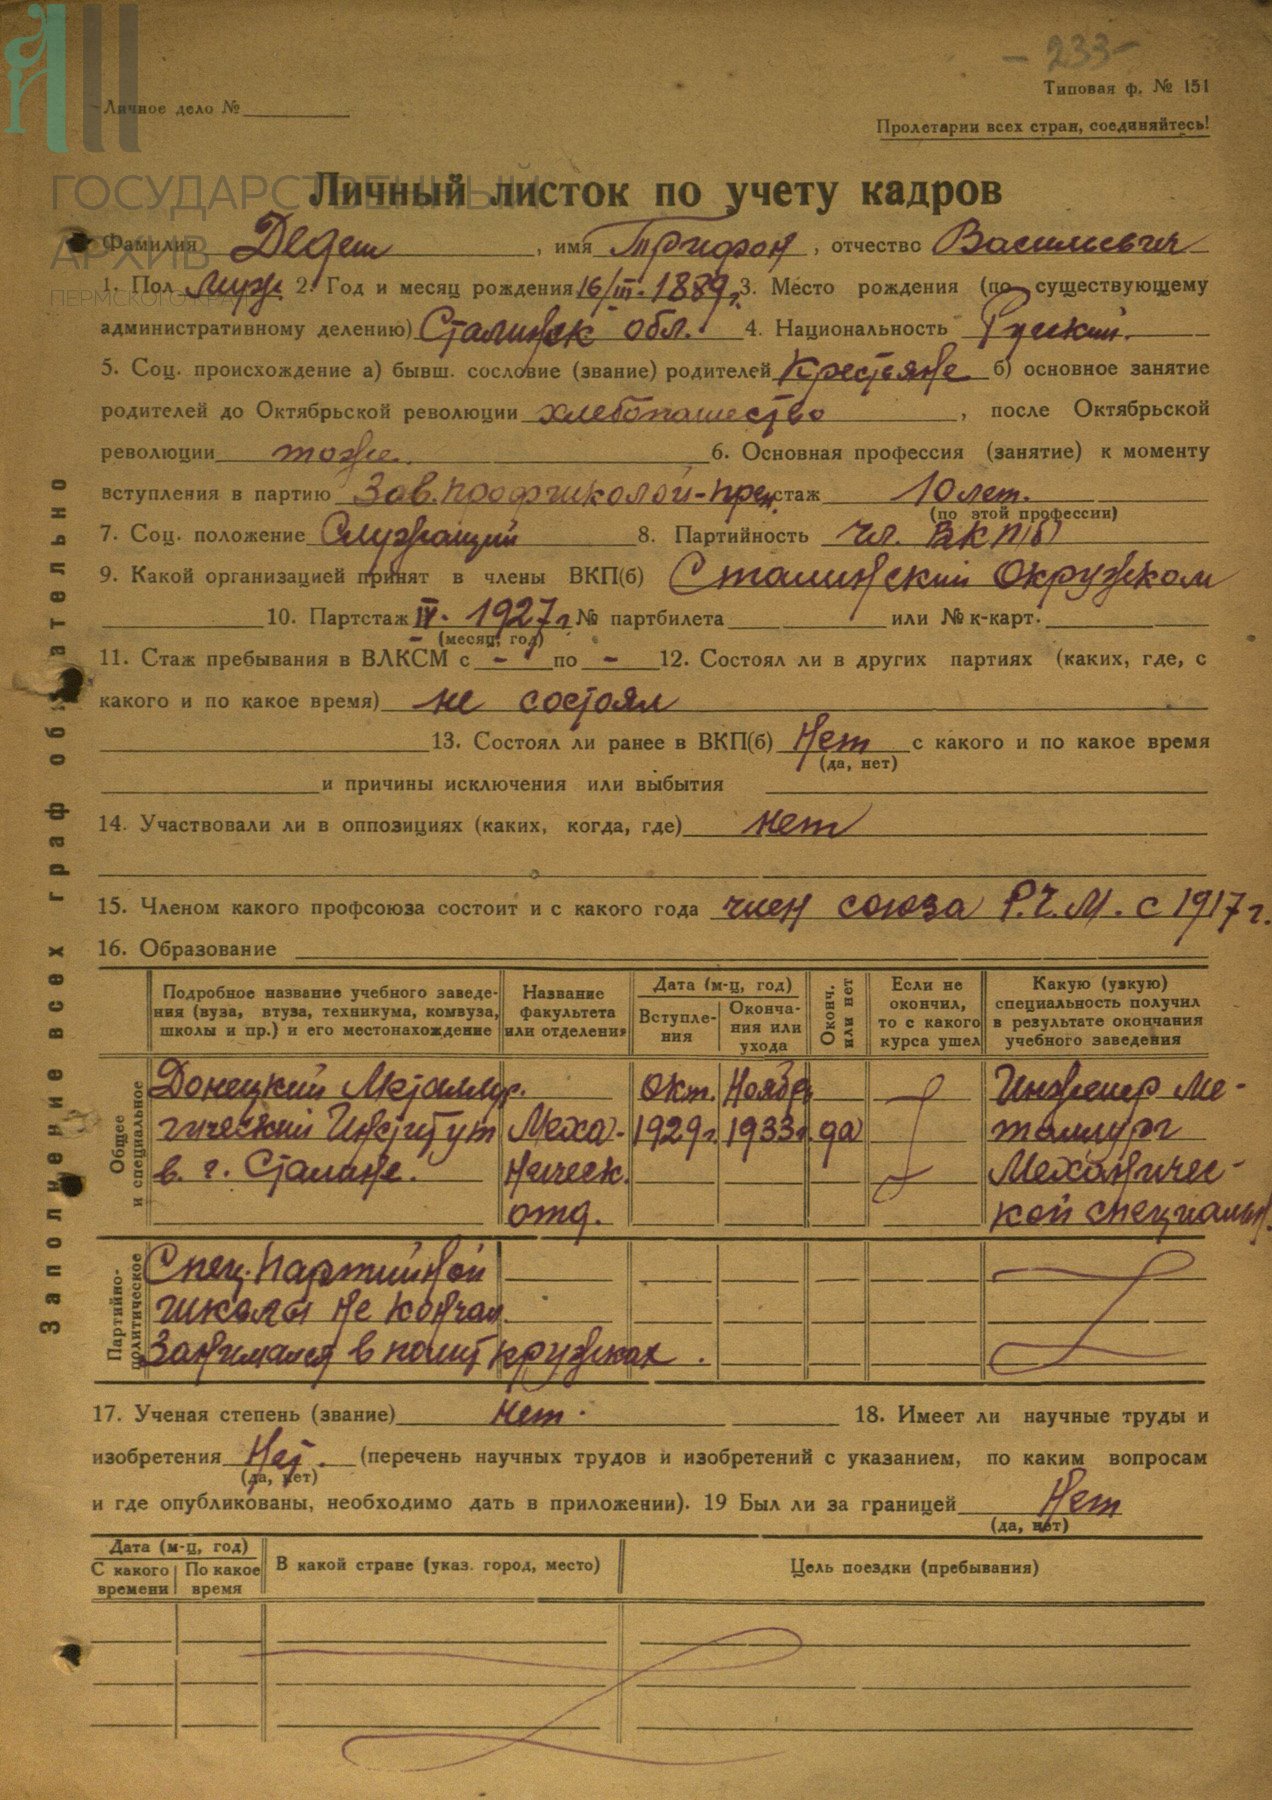 - 233 -
Типовая ф. № 151
Личное дело №
Пролетарии всех стран, соединяйтесь!
ГОСУДАРСТВЕННЫЙ
АРХИВ
Личный листок по учету кадров
Фамилия Дедеш, имя Трифон, отчество Васильевич
1. Пол Муж. 2. Год и месяц рождения 16/III-1889г. 3. Место рождения (по существующему
административному делению) Сталинск обл. 4. Национальность Русский.
5. Соц. происхождение а) бывш. сословие (звание) родителей Крестьяне б) основное занятие
родителей до Октябрьской революции хлебопашество, после Октябрьской
революции тоже. 6. Основная профессия (занятие) к моменту
вступления в партию Зав. профшколой-преп. стаж 10 лет.
(по этой профессии)
7. Соц. положение Служащий 8. Партийность Чл. ВКП(б)
9. Какой организацией принят в члены ВКП(б) Сталинский Окружком
10. Партстаж IV. 1927г. № партбилета или № к-карт.
(месяц, год)
11. Стаж пребывания в ВЛКСМ с - по - 12. Состоял ли в других партиях (каких, где, с
какого и по какое время) не состоял
13. Состоял ли ранее в ВКП(б) Нет с какого и по какое время
(да, нет)
и причины исключения или выбытия
14. Участвовали ли в оппозициях (каких, когда, где) нет
15. Членом какого профсоюза состоит и с какого года член союза Р.Ч.М. с 1917 г.
16. Образование
Подробное название учебного заведе-
ния (вуза, втуза, техникума, комвуза,
школы и пр.) и его местонахождение
Название
факультета
или отделения
Дата (м-ц, год)
Вступле-
ния
Оконча-
ния или
ухода
Оконч.
или нет
Если не
окончил,
то с какого
курса ушел
Какую (узкую)
специальность получил
в результате окончания
учебного заведения
Общее
и специальное
Донецкий Металлур- Окт. Ноябр. Инженер Ме-
гический Институт Меха- 1929г. 1933г. да таллург
в г. Сталине. ническ. Механичес-
отд. кой специальн.
Партийно-
политическое
Спец. партийной
школы не кончал.
Занимался в политкружках.
17. Ученая степень (звание) нет. 18. Имеет ли научные труды и
изобретения Нет. (перечень научных трудов и изобретений с указанием, по каким вопросам
(да, нет)
и где опубликованы, необходимо дать в приложении). 19 Был ли за границей Нет
(да, нет)
Дата (м-ц, год)
С какого
времени
По какое
время
В какой стране (указ. город, место)
Цель поездки (пребывания)
Заполнение всех граф обязательно